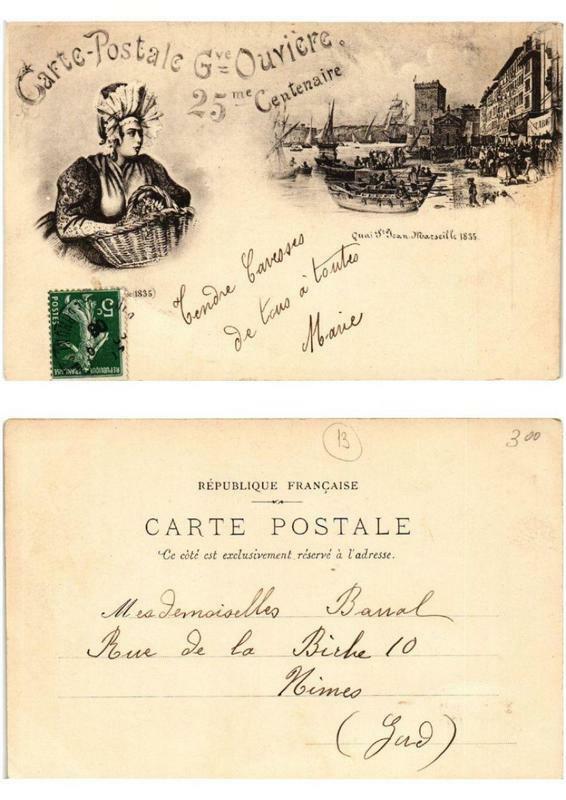 Carte-Postale Gve Ouvière.
25me Centenaire
Quai St Jean. Marseille 1835.
(1835)
Tendre Caresses
de tous à toutes
Marie
5c
POSTES
REPUBLIQUE FRANÇAISE
13
3 00
RÉPUBLIQUE FRANÇAISE
CARTE POSTALE
Ce côté est exclusivement réservé à l'adresse.
Mesdemoiselles Barral
Rue de la Biche 10
Nimes
(Gard)